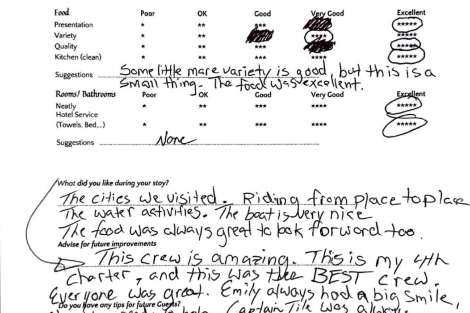 Food Poor OK Good Very Good Excellent
Presentation * ** *** *****
Variety * ** **** *****
Quality * ** *** *****
Kitchen (clean) * ** *** **** *****
Suggestions Some little more variety is good, but this is a
small thing. The food was excellent.
Rooms/ Bathrooms Poor OK Good Very Good Excellent
Neatly * ** *** **** *****
Hotel Service
(Towels, Bed...) * ** *** **** *****
Suggestions None
What did you like during your stay?
The cities we visited. Riding from place to place
The water activities. The boat is very nice
The food was always great to look forword too.
Advise for future improvements
This crew is amazing. This is my 4th
charter, and this was the BEST crew.
Everyone was great. Emily always had a big smile,
Do you have any tips for future Guests?
Captain was always